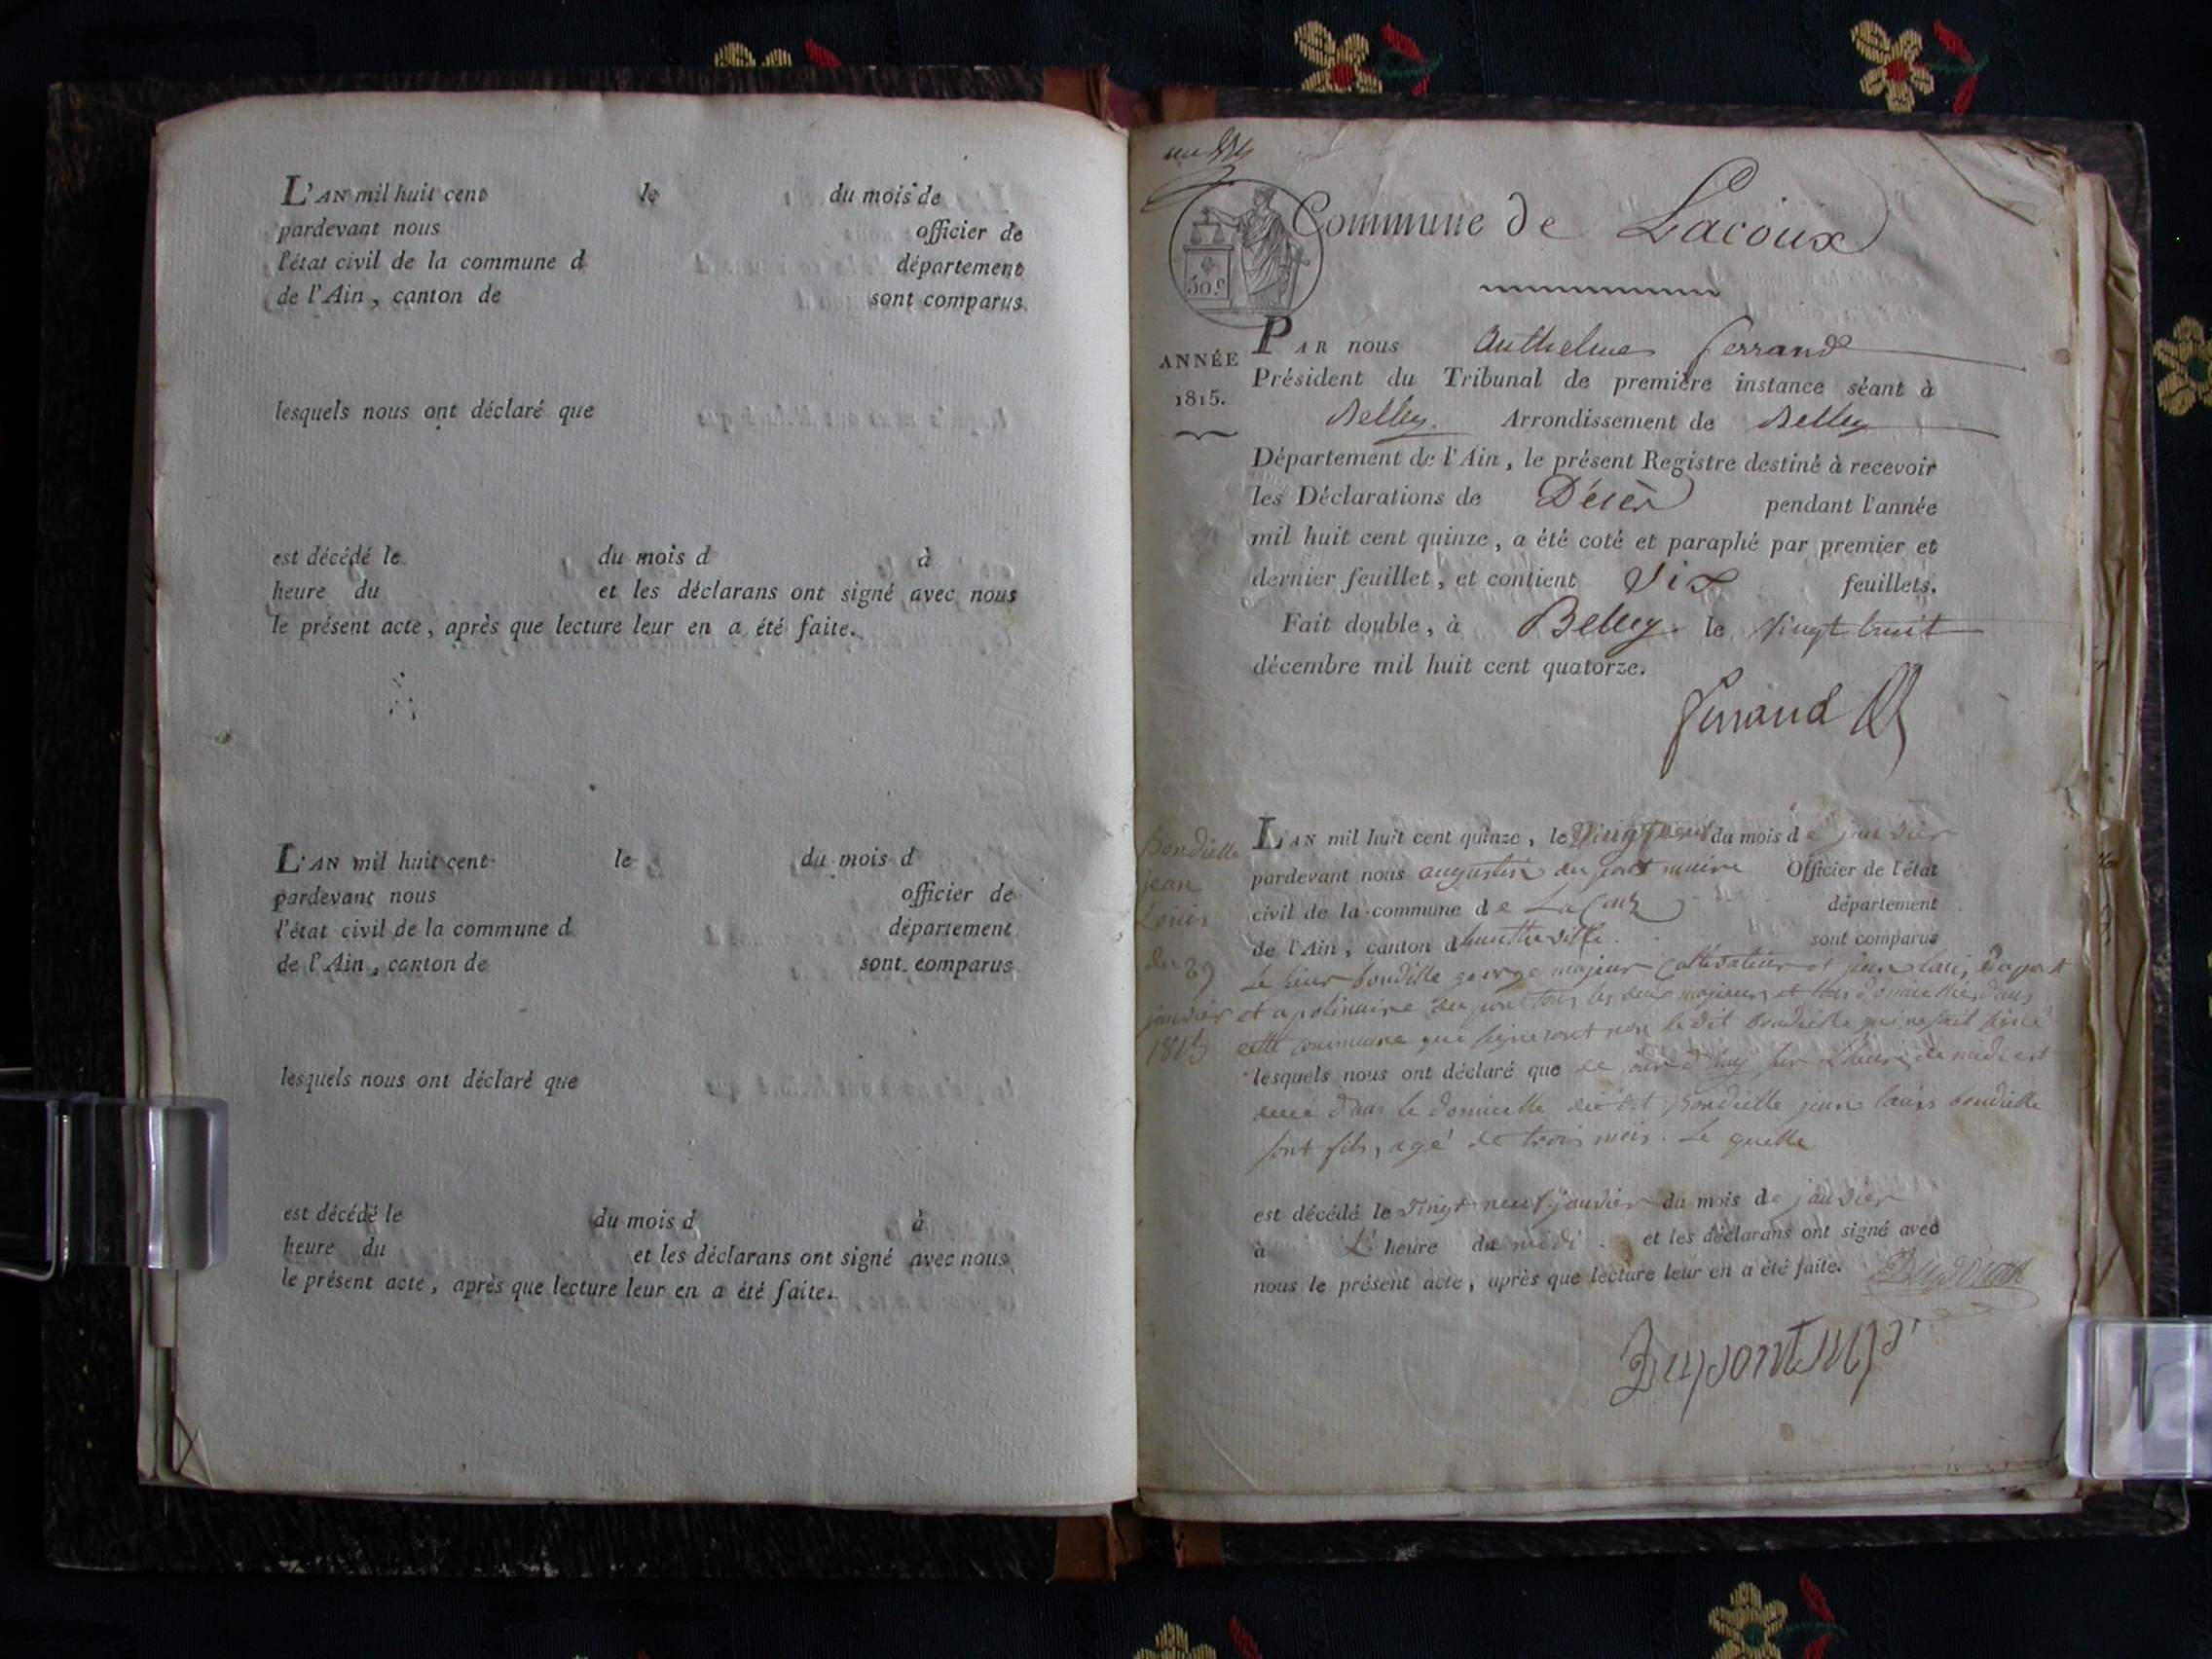 L'AN mil huit cent le du mois de
pardevant nous officier de
l'état civil de la commune d département
de l'Ain, canton de sont comparus
lesquels nous ont déclaré que
est décédé le du mois d à
heure du et les déclarans ont signé avec nous
le présent acte, après que lecture leur en a été faite.
L'AN mil huit cent le du mois d
pardevant nous officier de
l'état civil de la commune d département
de l'Ain, canton de sont comparus
lesquels nous ont déclaré que
est décédé le du mois d à
heure du et les déclarans ont signé avec nous
le présent acte, après que lecture leur en a été faite.
Commune de Lacoux
50 c
ANNÉE
1815.
PAR nous Anthelme Ferrand
Président du Tribunal de première instance séant à
Belley. Arrondissement de Belley
Département de l'Ain, le présent Registre destiné à recevoir
les Déclarations de Décès pendant l'année
mil huit cent quinze, a été coté et paraphé par premier et
dernier feuillet, et contient Six feuillets.
Fait double, à Belley le Vingt huit
décembre mil huit cent quatorze.
Ferrand
Bondielle
jean
Louis
du 29
janvier
1815
L'AN mil huit cent quinze, le Vingt neuf du mois de janvier
pardevant nous augustin du pont maire Officier de l'état
civil de la commune de La Coux département
de l'Ain, canton d'hauteville. sont comparus
Le sieur bondielle george majeur Cultivateur et jean louis Dupont
et apolinaire du pont tous les deux majeurs et tous domiciliés dans
cette commune que signeront non le dit bondielle qui ne sait signé
lesquels nous ont déclaré que ce jour d'huy sur L'heure de midi est
dans le domicille du dit Bondielle jean louis bondielle
sont fils, agé de trois mois. Le quelle
est décédé le Vingt neuf janvier du mois de janvier
à L' heure du midi. et les déclarans ont signé avec
nous le présent acte, après que lecture leur en a été faite. Dupont
Dupont